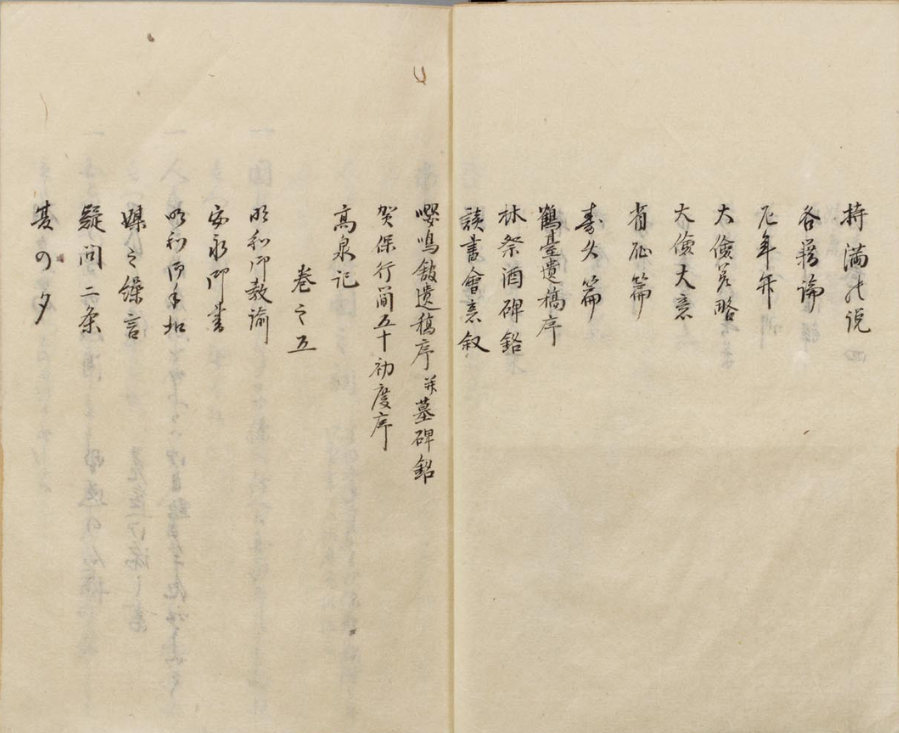 持満の説
各務論
凡年弁
大倹差略
大倹大意
省所篇
寿久篇
鶴臺遺稿序
林祭酒碑銘
読書會意叙
嚶鳴館遺稿序并墓碑銘
賀保行簡五十初度序
高泉记
巻之五
明和御教諭
安永御書
明和
媒之繰言
疑問二条
夏の夕